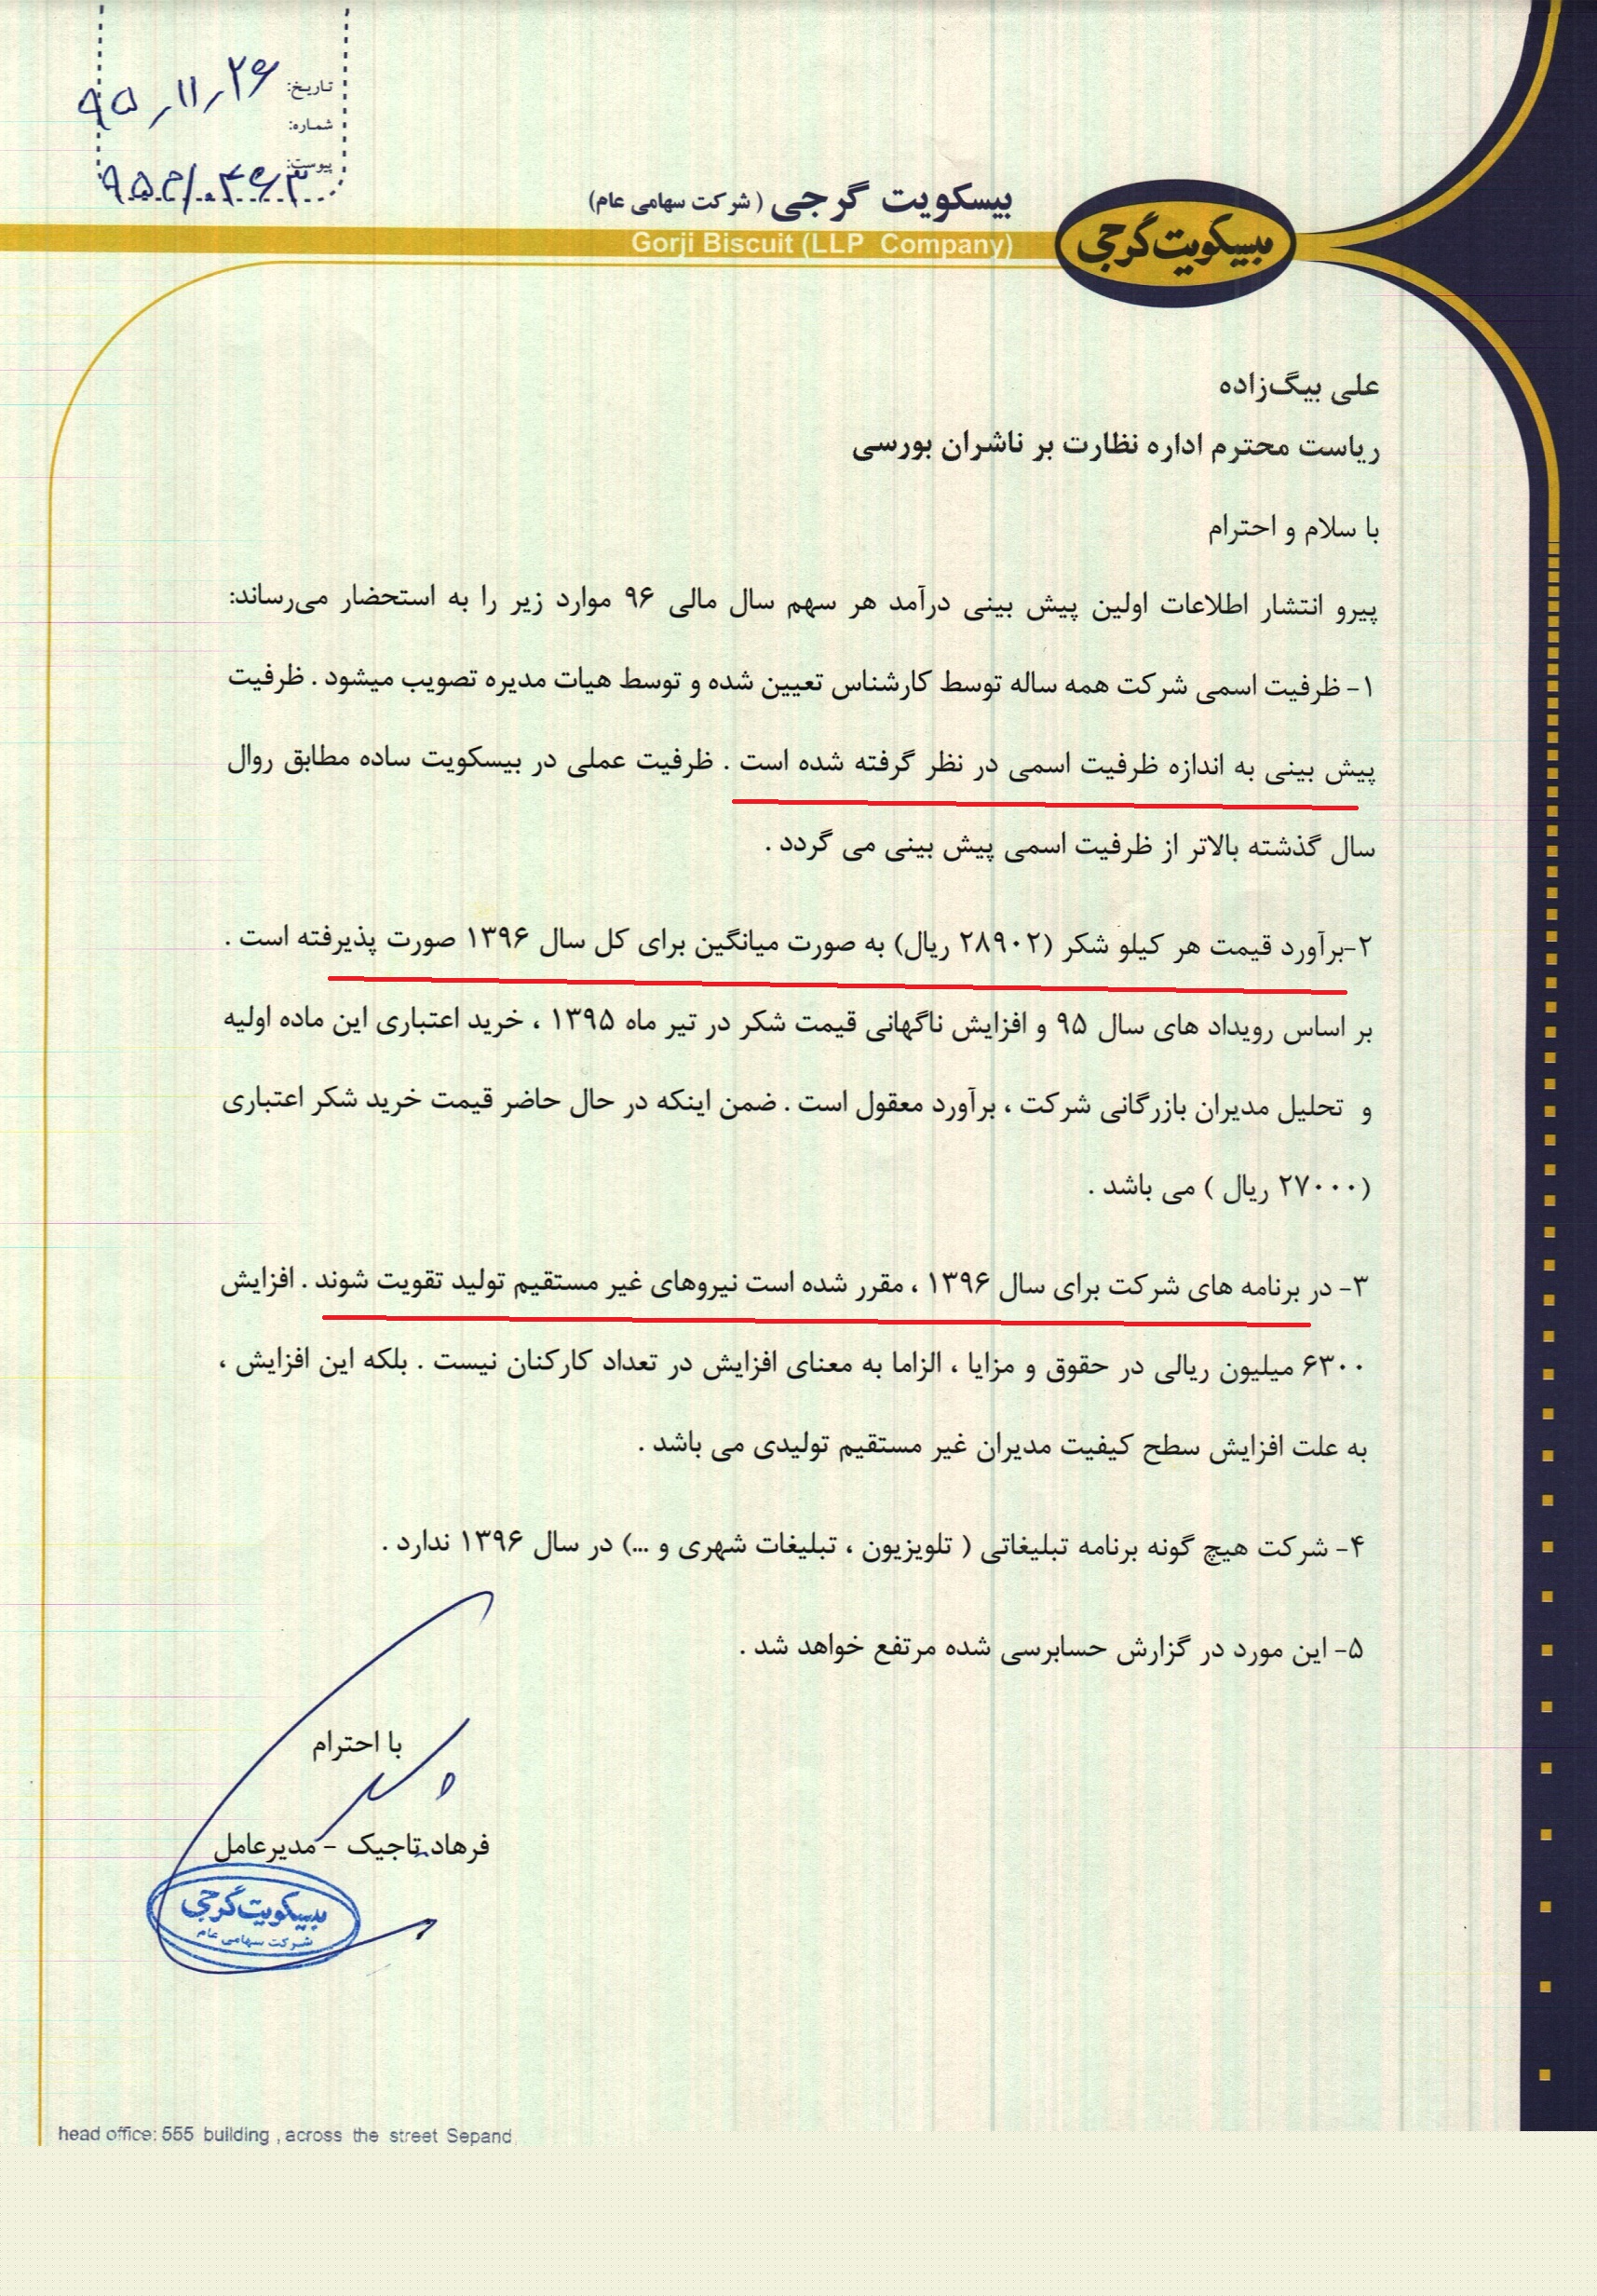 تاریخ: ۹۵/۱۱/۲۶
شماره:
پیوست:
بیسکویت گرجی (شرکت سهامی عام)
Gorji Biscuit (LLP Company)
بیسکویت گرجی
علی بیگ‌زاده
ریاست محترم اداره نظارت بر ناشران بورسی
با سلام و احترام
پیرو انتشار اطلاعات اولین پیش بینی درآمد هر سهم سال مالی ۹۶ موارد زیر را به استحضار می‌رساند:
۱- ظرفیت اسمی شرکت همه ساله توسط کارشناس تعیین شده و توسط هیات مدیره تصویب میشود . ظرفیت
پیش بینی به اندازه ظرفیت اسمی در نظر گرفته شده است . ظرفیت عملی در بیسکویت ساده مطابق روال
سال گذشته بالاتر از ظرفیت اسمی پیش بینی می گردد .
۲-برآورد قیمت هر کیلو شکر (۲۸۹۰۲ ریال) به صورت میانگین برای کل سال ۱۳۹۶ صورت پذیرفته است .
بر اساس رویداد های سال ۹۵ و افزایش ناگهانی قیمت شکر در تیر ماه ۱۳۹۵ ، خرید اعتباری این ماده اولیه
و تحلیل مدیران بازرگانی شرکت ، برآورد معقول است . ضمن اینکه در حال حاضر قیمت خرید شکر اعتباری
(۲۷۰۰۰ ریال ) می باشد .
۳- در برنامه های شرکت برای سال ۱۳۹۶ ، مقرر شده است نیروهای غیر مستقیم تولید تقویت شوند . افزایش
۶۳۰۰ میلیون ریالی در حقوق و مزایا ، الزاما به معنای افزایش در تعداد کارکنان نیست . بلکه این افزایش ،
به علت افزایش سطح کیفیت مدیران غیر مستقیم تولیدی می باشد .
۴- شرکت هیچ گونه برنامه تبلیغاتی ( تلویزیون ، تبلیغات شهری و ...) در سال ۱۳۹۶ ندارد .
۵- این مورد در گزارش حسابرسی شده مرتفع خواهد شد .
با احترام
فرهاد تاجیک – مدیرعامل
بیسکویت گرجی
شرکت سهامی عام
head office: 555 building , across the street Sepand